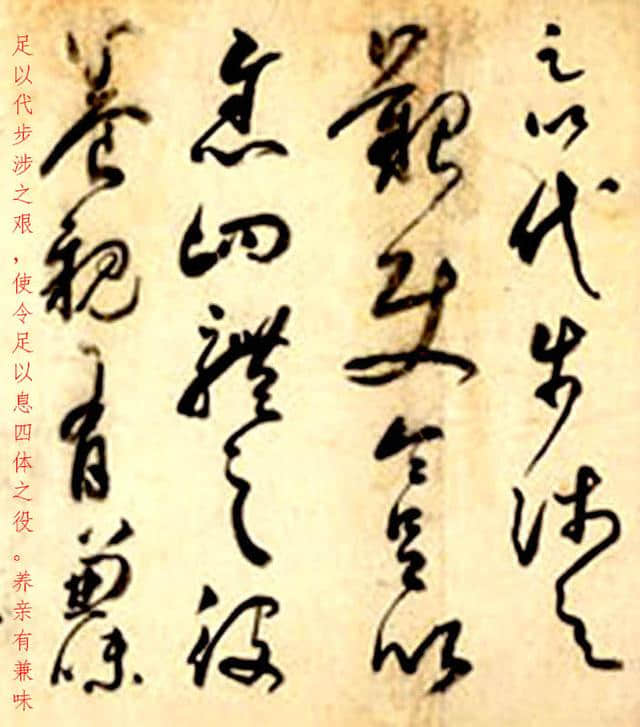 足以代步涉之
艱使令足以
息四體之役
養親有兼味
足以代步涉之艰，使令足以息四体之役。养亲有兼味